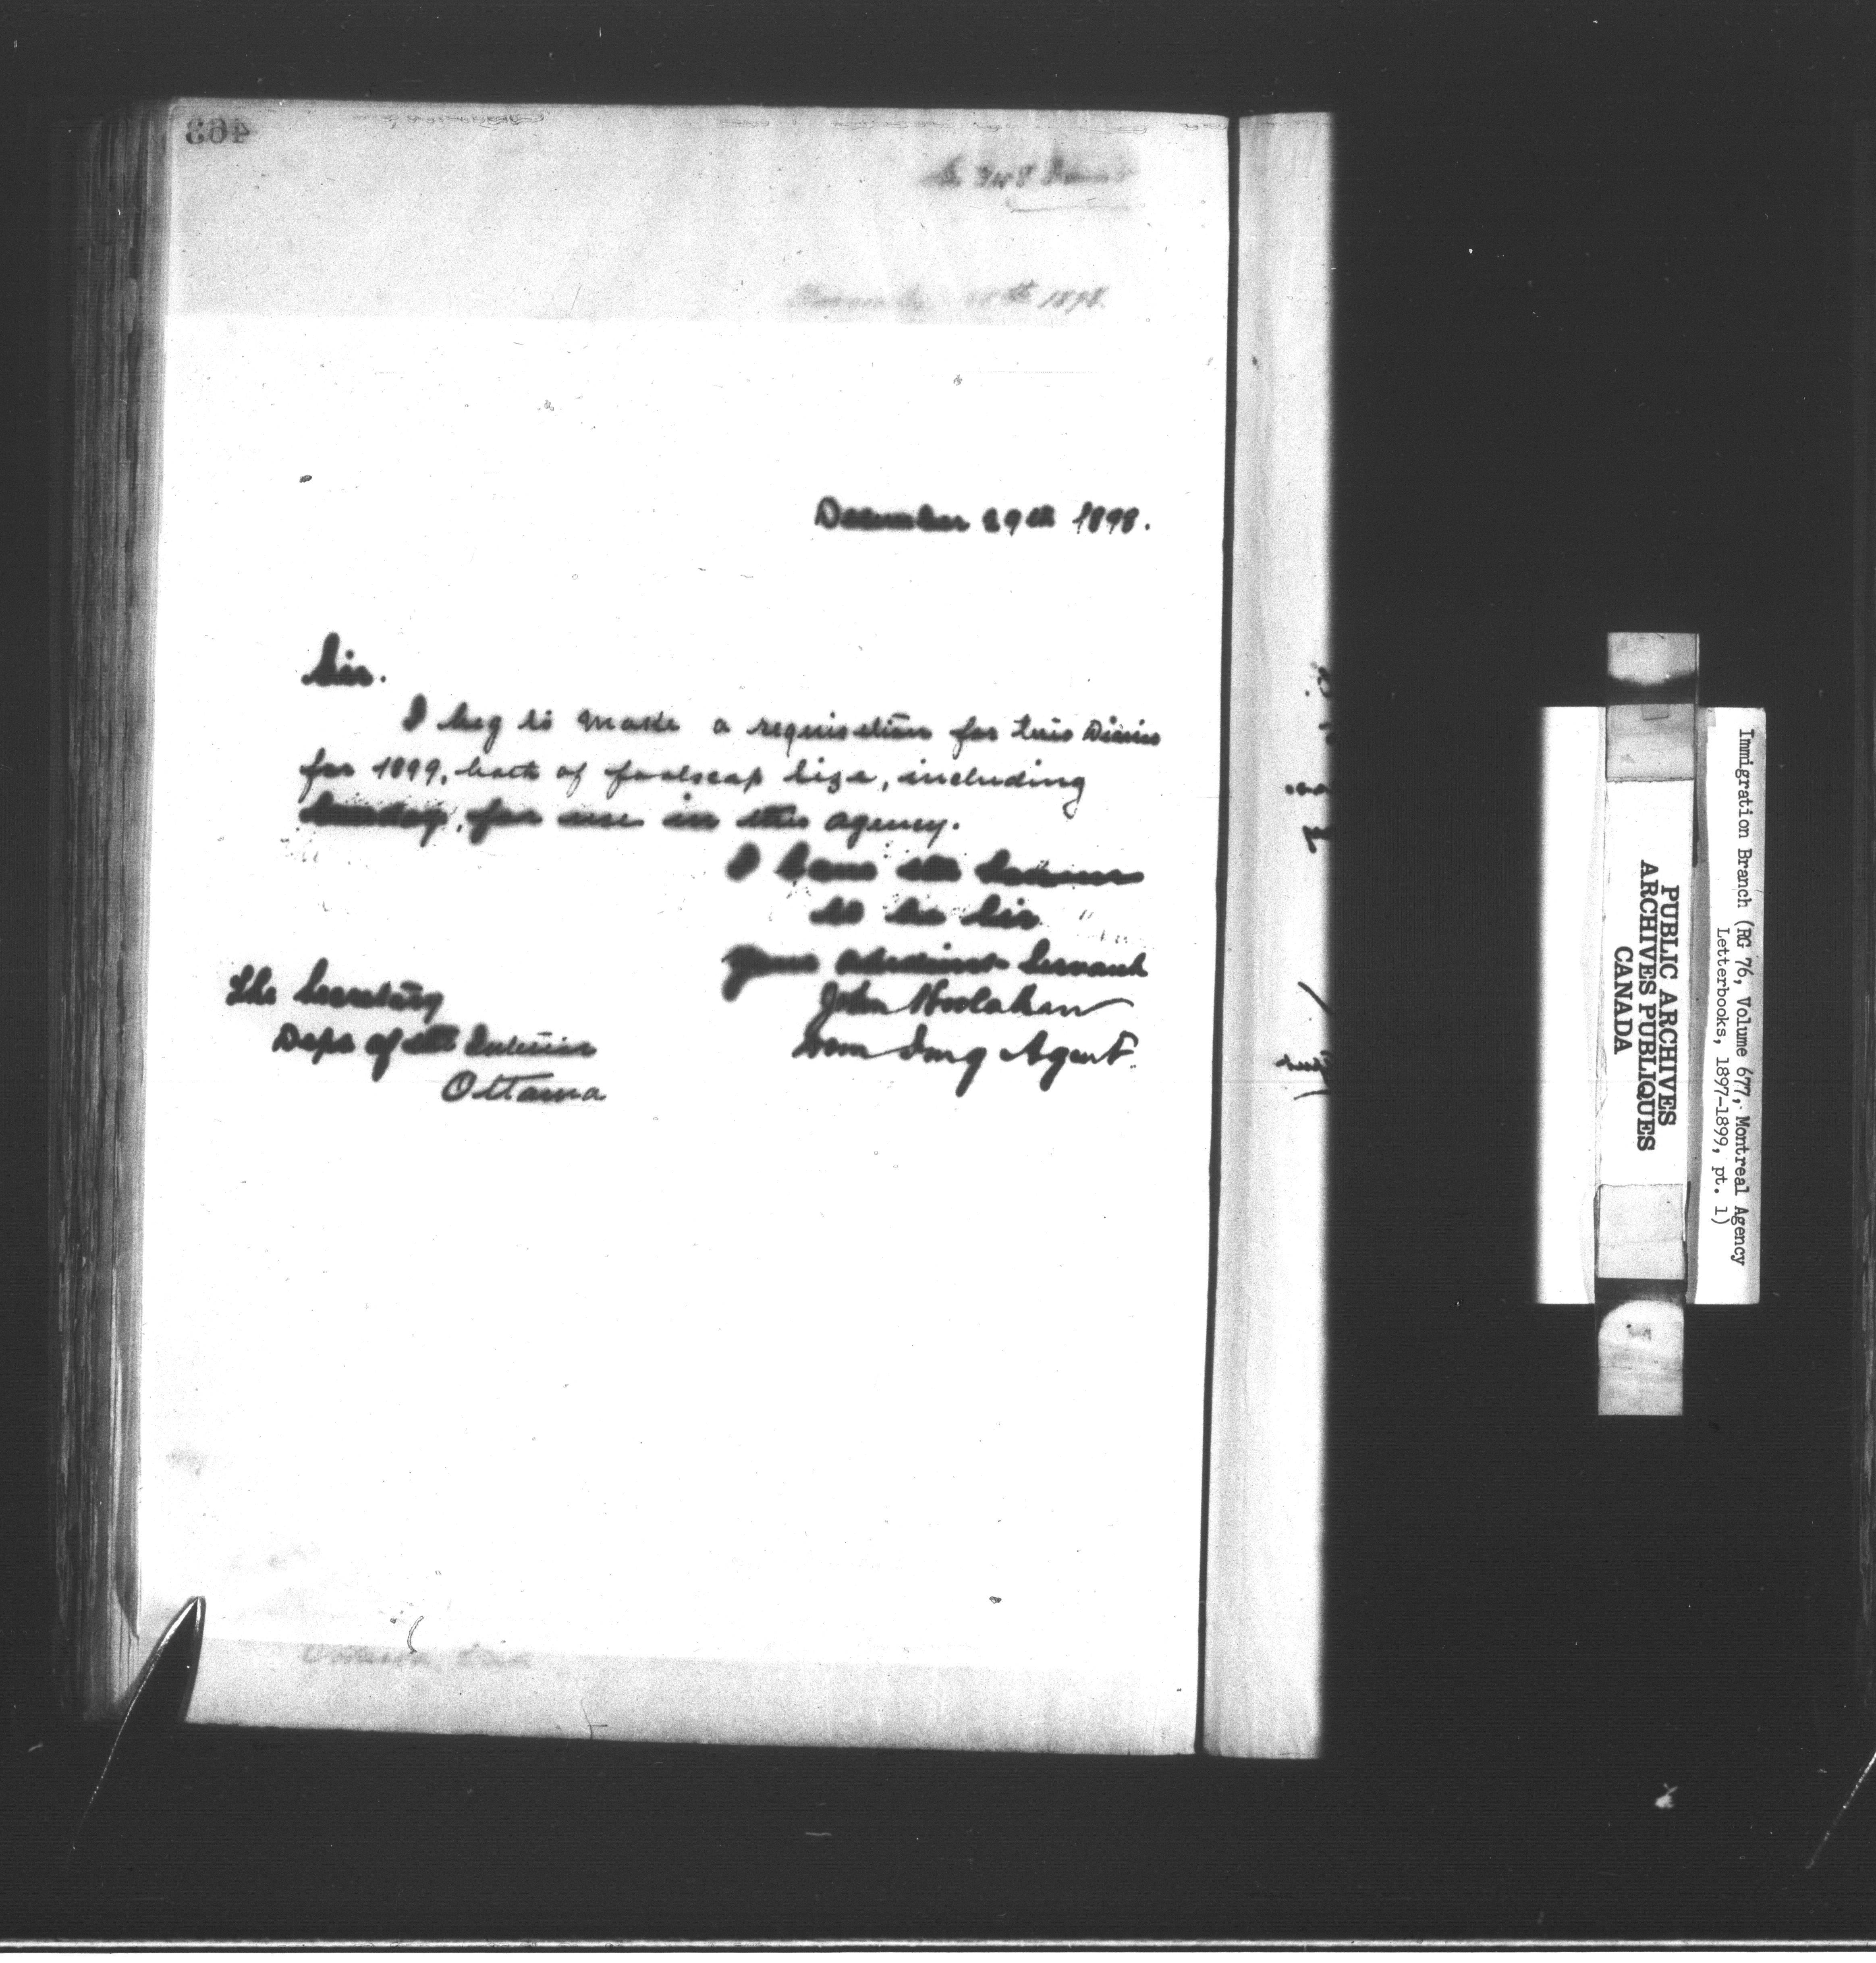 463
December 29th 1898.
Sir.
I beg to make a requisition for two Diaries
for 1899, both of foolscap size, including
Sunday, for use in this agency.
I have the honour
to be Sir
Your obedient Servant
John Hoolahan
Dom Img Agent.
The Secretary
Dept of the Interior
Ottawa
1898
Immigration Branch (RG 76, Volume 677, Montreal Agency
Letterbooks, 1897-1899, pt. 1)
PUBLIC ARCHIVES
ARCHIVES PUBLIQUES
CANADA